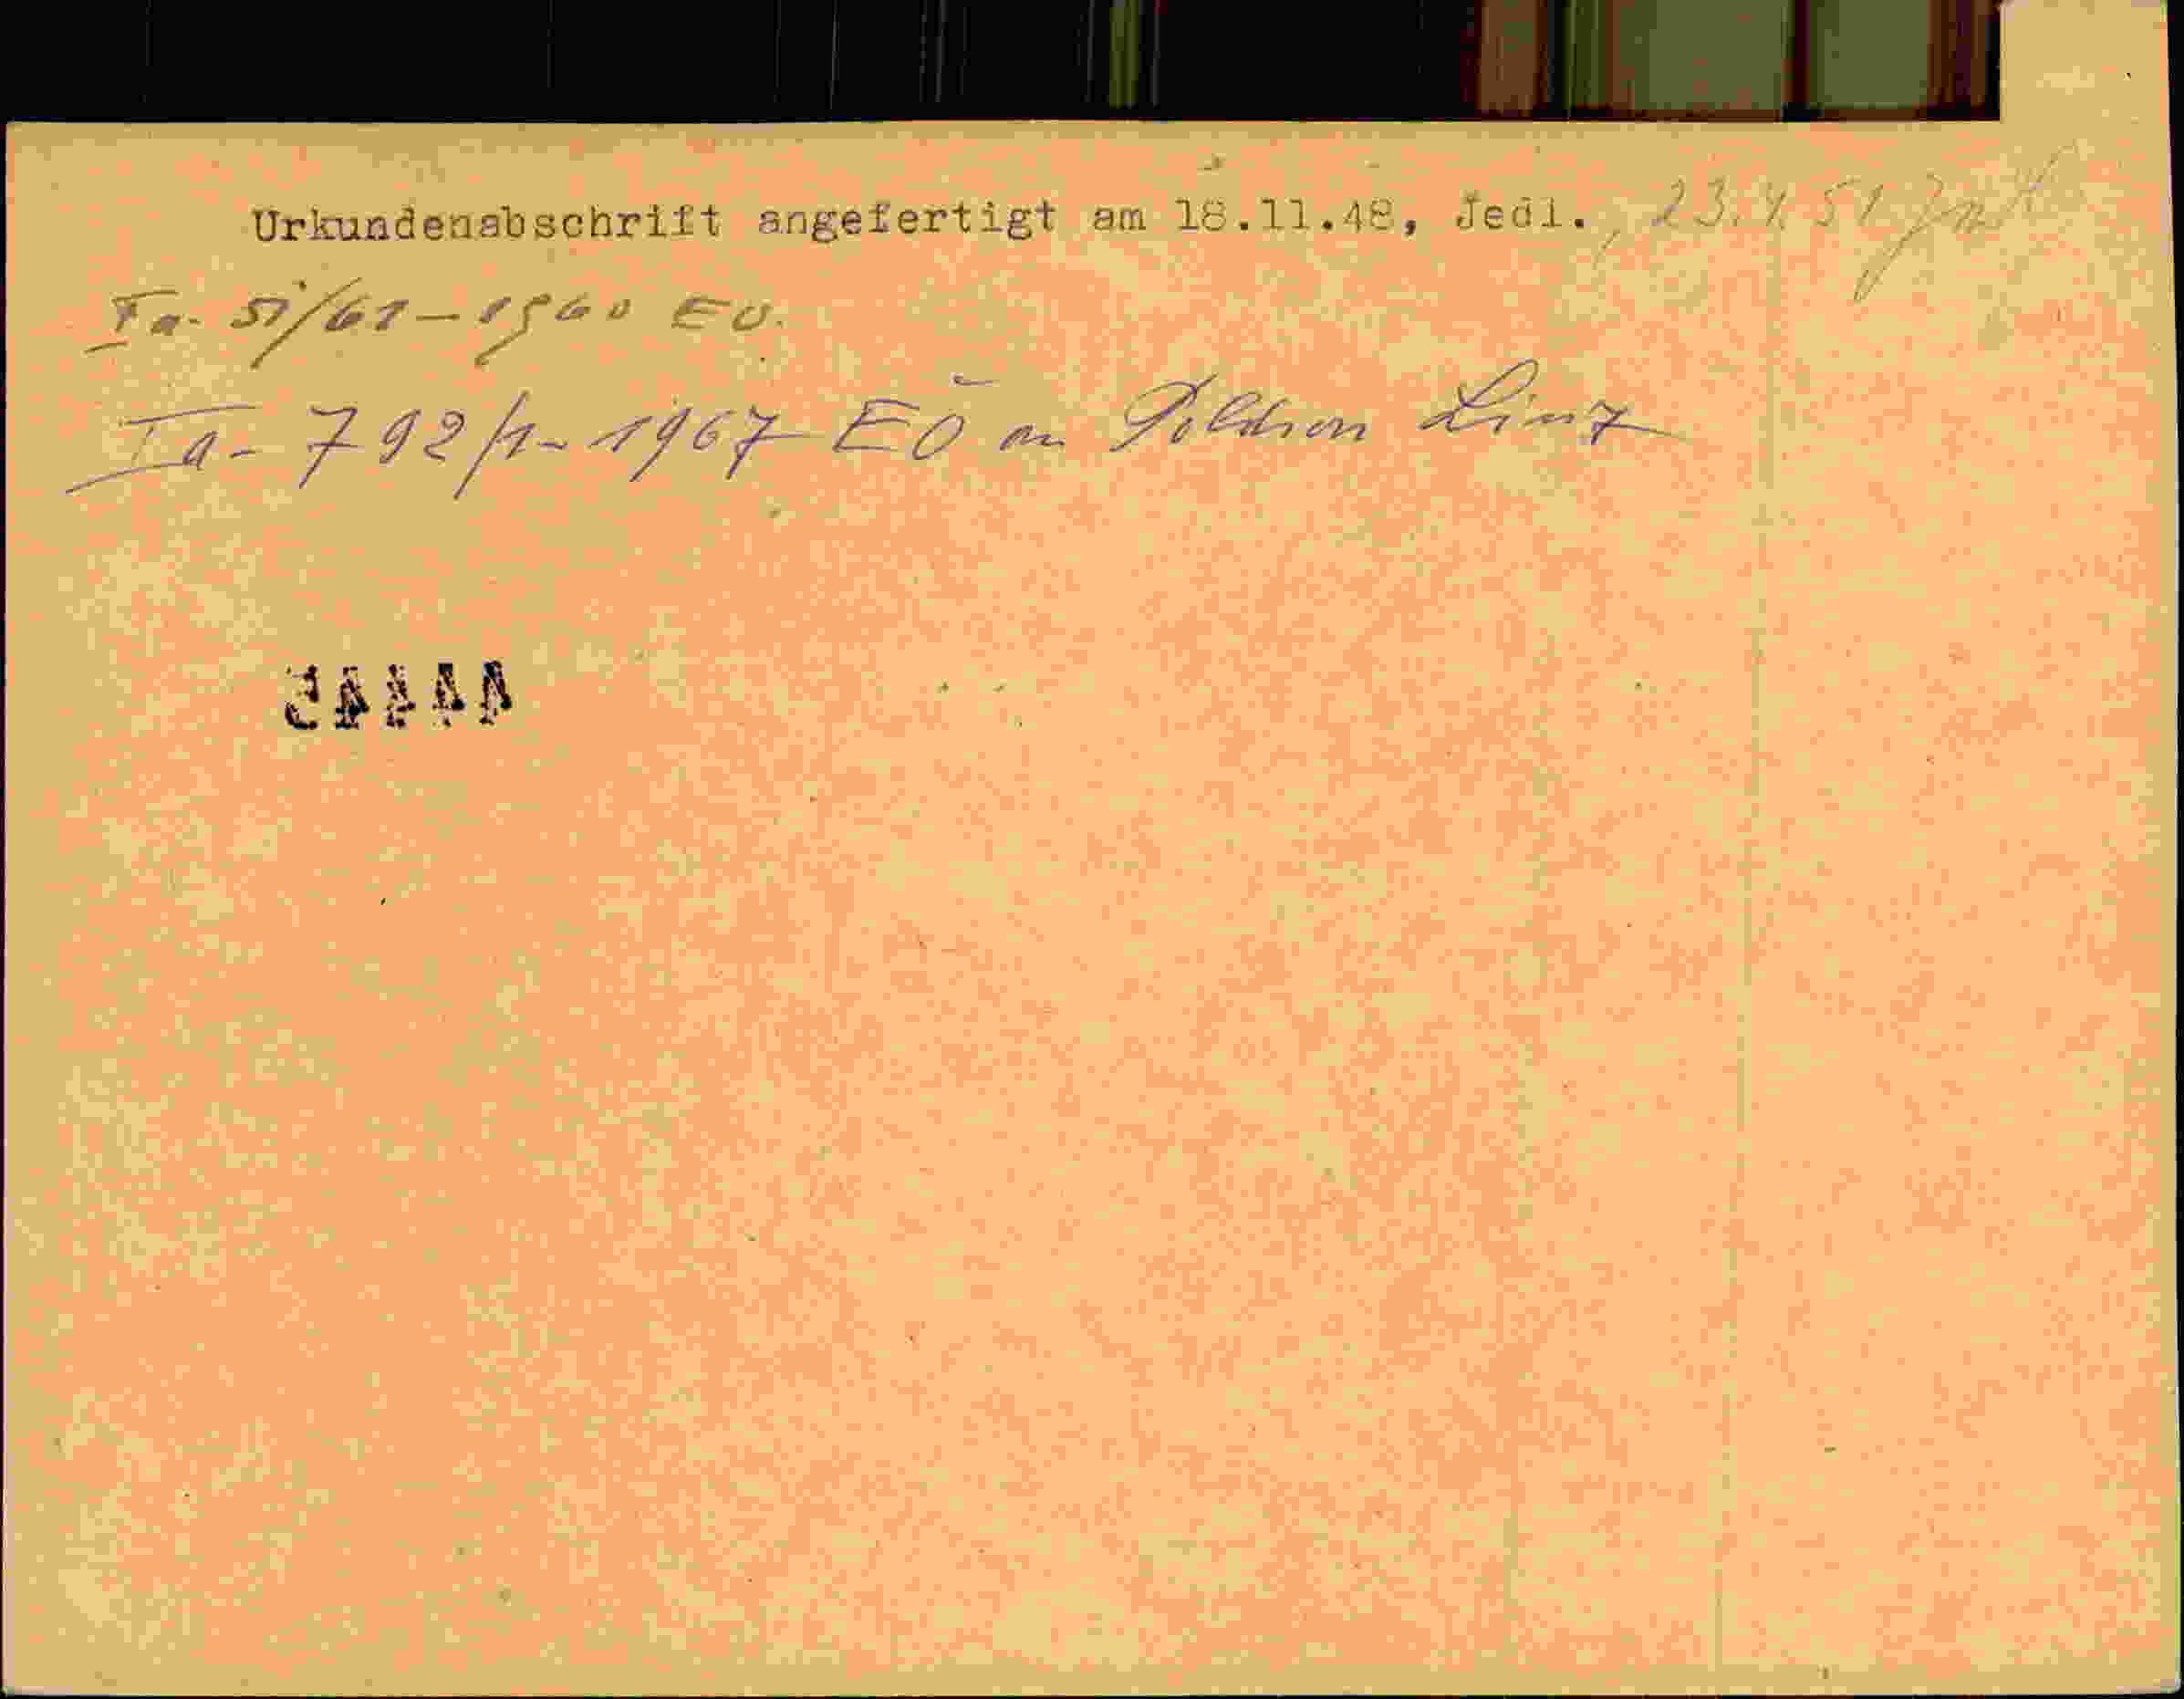 Urkundenabschrift angefertigt am 18.11.48, Jedl., 23.4.51
Ia- 51/61-1960 EO.
Ia- 792/1-1967 EO an Poldion Linz